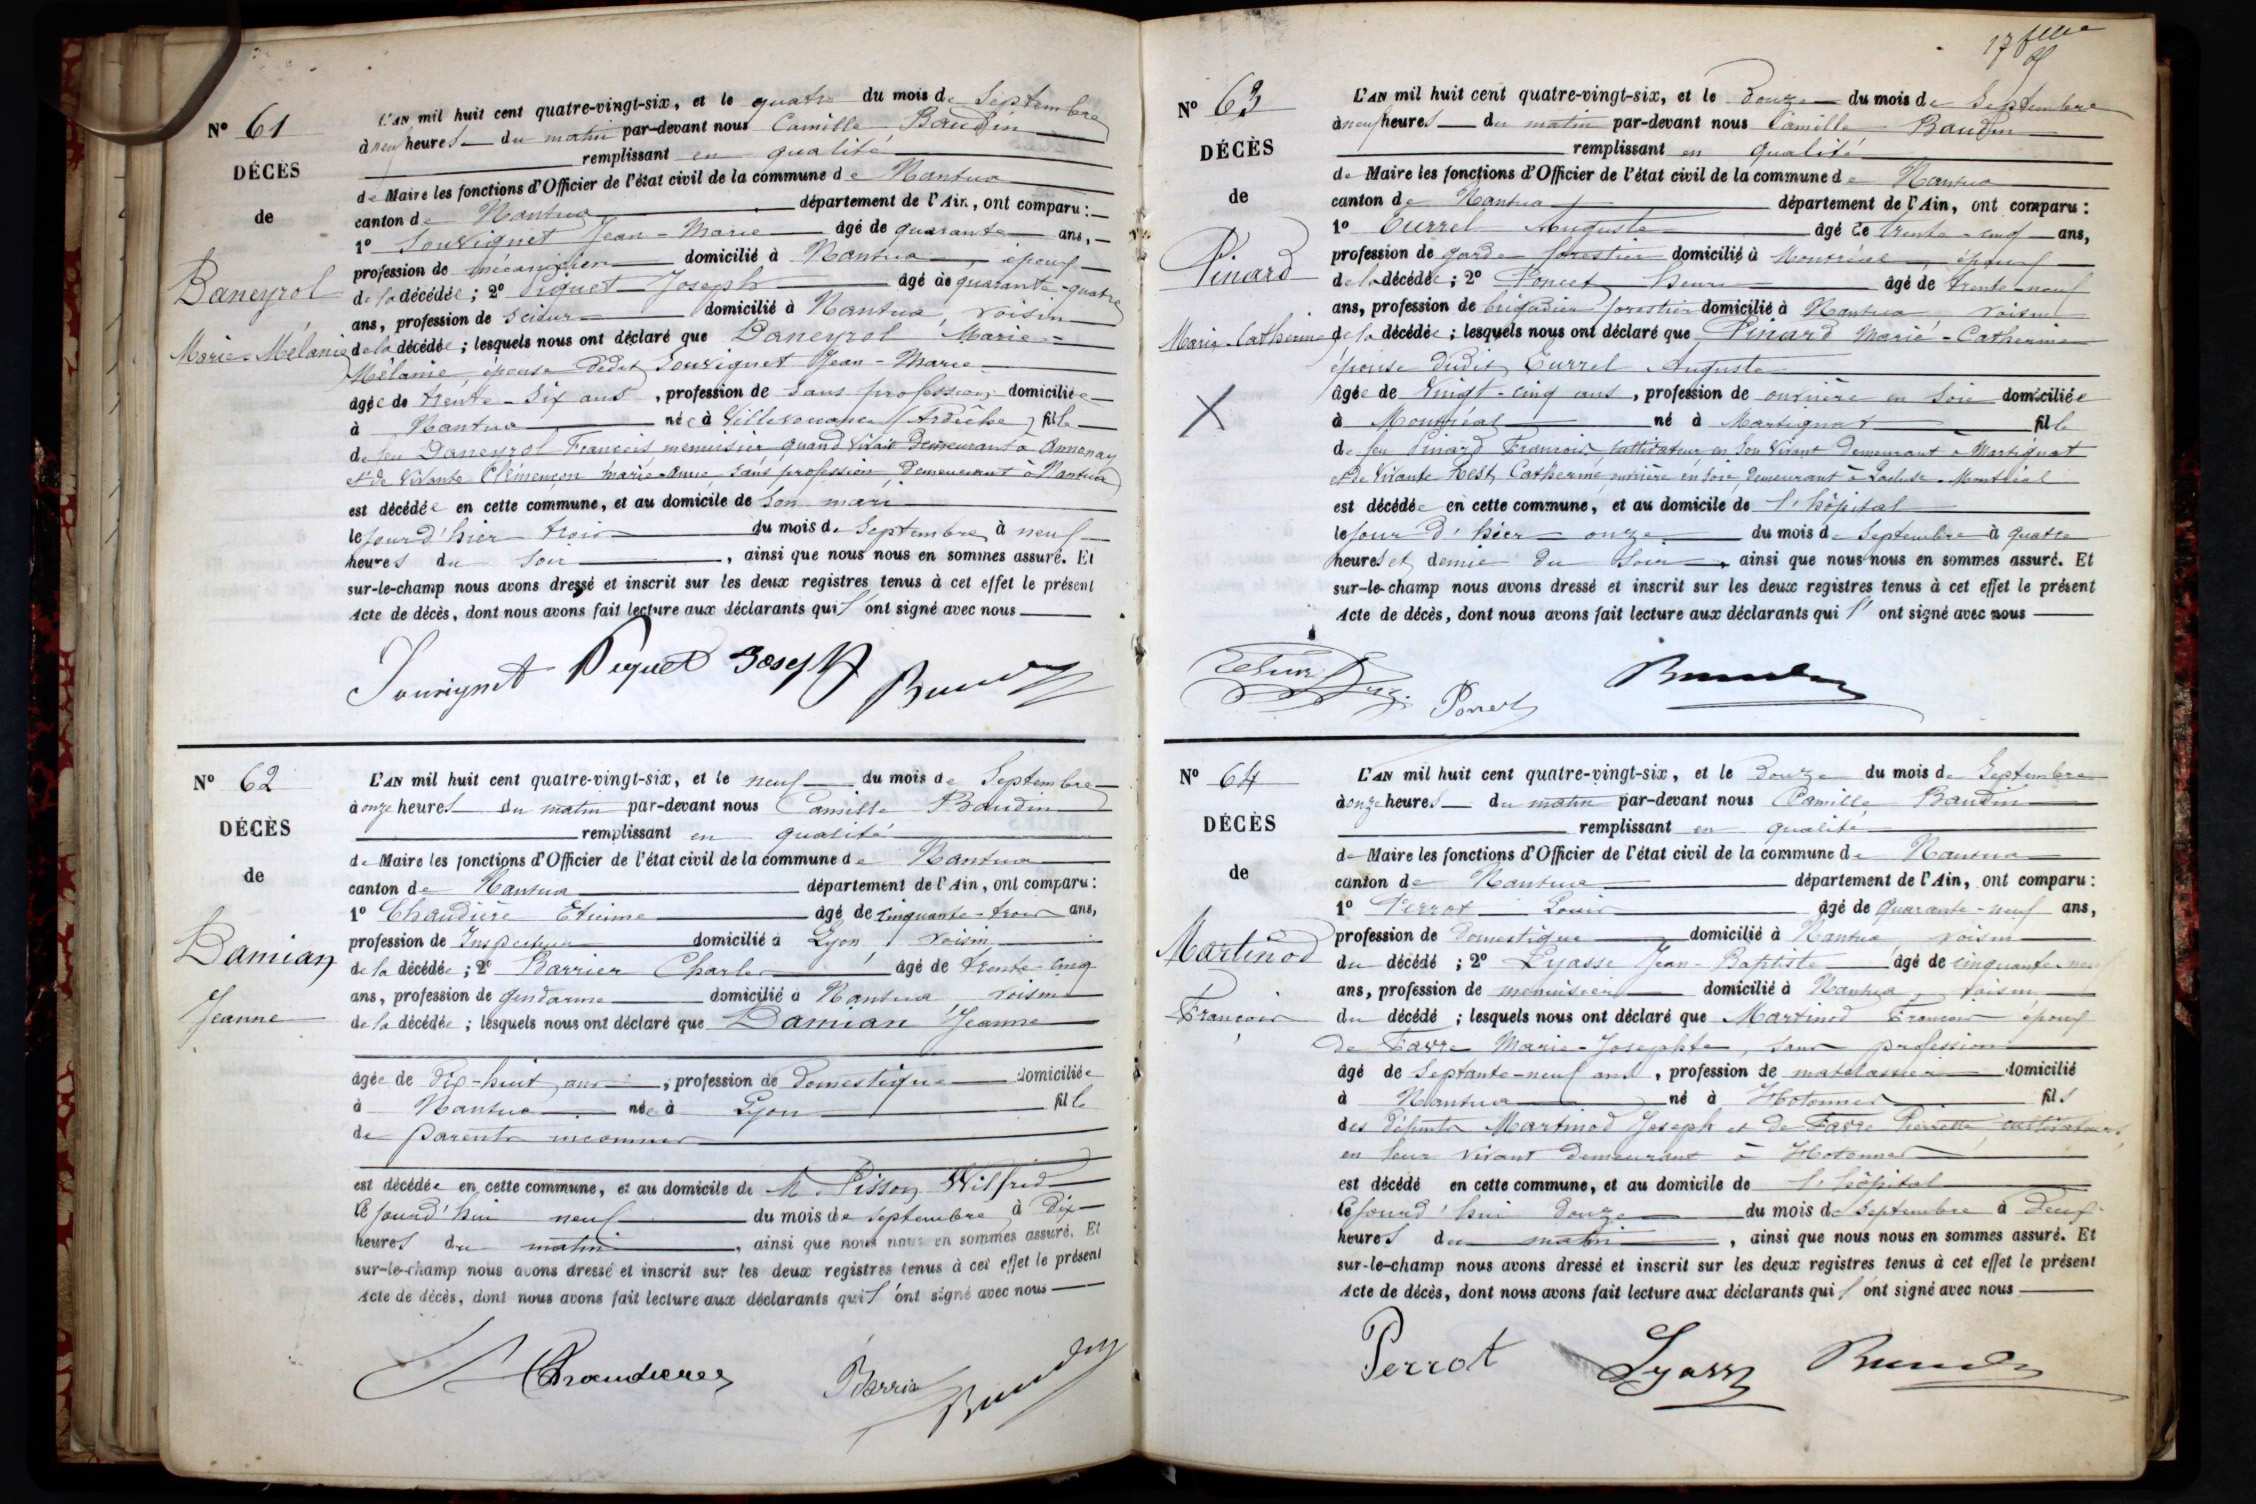 Nº 61
DÉCÈS
de
Daneyrol
Marie-Mélanie
L'AN mil huit cent quatre-vingt-six, et le quatre du mois de Septembre
à neuf heures du matin par-devant nous Camille Baudin
remplissant en qualité
de Maire les fonctions d'Officier de l'état civil de la commune de Nantua
canton de Nantua département de l'Ain, ont comparu :
1º Souvignet Jean-Marie âgé de quarante ans,
profession de mécanicien domicilié à Nantua, époux
de la décédée ; 2º Piquet Joseph âgé de quarante-quatre
ans, profession de scieur domicilié à Nantua, voisin
de la décédée ; lesquels nous ont déclaré que Daneyrol Marie-
Mélanie, épouse dudit Souvignet Jean-Marie
âgée de trente-six ans, profession de sans profession, domiciliée
à Nantua née à Villevocance (Ardèche) fille
de feu Daneyrol François menuisier quand vivait demeurant à Annonay
et de vivante Clémençon Marie-Anne sans profession, demeurant à Nantua
est décédée en cette commune, et au domicile de son mari
le jourd'hier trois du mois de Septembre à neuf
heures du soir, ainsi que nous nous en sommes assuré. Et
sur-le-champ nous avons dressé et inscrit sur les deux registres tenus à cet effet le présent
Acte de décès, dont nous avons fait lecture aux déclarants qui l'ont signé avec nous
Souvignet Piquet Joseph Baudin
Nº 62
DÉCÈS
de
Damian
Jeanne
L'AN mil huit cent quatre-vingt-six, et le neuf du mois de Septembre
à onze heures du matin par-devant nous Camille Baudin
remplissant en qualité
de Maire les fonctions d'Officier de l'état civil de la commune de Nantua
canton de Nantua département de l'Ain, ont comparu :
1º Chaudière Etienne âgé de cinquante-trois ans,
profession de Inspecteur domicilié à Lyon, voisin
de la décédée ; 2º Barrier Charles âgé de trente cinq
ans, profession de gendarme domicilié à Nantua, voisin
de la décédée ; lesquels nous ont déclaré que Damian Jeanne
âgée de dix-huit ans, profession de domestique domiciliée
à Nantua née à Lyon fille
de parents inconnus
est décédée en cette commune, et au domicile de M. Pisson Wilfrid
le jourd'hui neuf du mois de septembre à dix
heures du matin, ainsi que nous nous en sommes assuré. Et
sur-le-champ nous avons dressé et inscrit sur les deux registres tenus à cet effet le présent
Acte de décès, dont nous avons fait lecture aux déclarants qui l'ont signé avec nous
Chaudière Barrier Baudin
Nº 63
DÉCÈS
de
Pinard
Marie-Catherine
L'AN mil huit cent quatre-vingt-six, et le douze du mois de Septembre
à neuf heures du matin par-devant nous Camille Baudin
remplissant en qualité
de Maire les fonctions d'Officier de l'état civil de la commune de Nantua
canton de Nantua département de l'Ain, ont comparu :
1º Auguste âgé de trente-cinq ans,
profession de garde forestier domicilié à Montréal, époux
de la décédée ; 2º Poncet Henri âgé de trente-neuf
ans, profession de brigadier forestier domicilié à Nantua voisin
de la décédée ; lesquels nous ont déclaré que Pinard Marie-Catherine
épouse dudit Auguste
âgée de vingt-cinq ans, profession de ouvrière en soie domiciliée
à Montréal né à Martignat fille
de feu Pinard François, cultivateur en son vivant demeurant à Martignat
et de vivante Catherine, ouvrière en soie, demeurant à Montréal
est décédée en cette commune, et au domicile de l'hôpital
le jour d'hier onze du mois de Septembre à quatre
heures et demie du soir, ainsi que nous nous en sommes assuré. Et
sur-le-champ nous avons dressé et inscrit sur les deux registres tenus à cet effet le présent
Acte de décès, dont nous avons fait lecture aux déclarants qui l'ont signé avec nous
Poncet Baudin
Nº 64
DÉCÈS
de
Martinod
François
L'AN mil huit cent quatre-vingt-six, et le douze du mois de Septembre
à onze heures du matin par-devant nous Camille Baudin
remplissant en qualité
de Maire les fonctions d'Officier de l'état civil de la commune de Nantua
canton de Nantua département de l'Ain, ont comparu :
1º Perrot Louis âgé de quarante-neuf ans,
profession de domestique domicilié à Nantua voisin
du décédé ; 2º Lyasse Jean-Baptiste âgé de cinquante-neuf
ans, profession de menuisier domicilié à Nantua, voisin
du décédé ; lesquels nous ont déclaré que Martinod François époux
de Favre Marie-Josephte, sans profession
âgé de septante-neuf ans, profession de matelassier domicilié
à Nantua né à Hotonnes fils
des défunts Martinod Joseph et de Favre Pierrette cultivateurs,
en leur vivant demeurant à Hotonnes
est décédé en cette commune, et au domicile de l'hôpital
le jourd'hui douze du mois de Septembre à neuf
heures du matin, ainsi que nous nous en sommes assuré. Et
sur-le-champ nous avons dressé et inscrit sur les deux registres tenus à cet effet le présent
Acte de décès, dont nous avons fait lecture aux déclarants qui l'ont signé avec nous
Perrot Lyasse Baudin